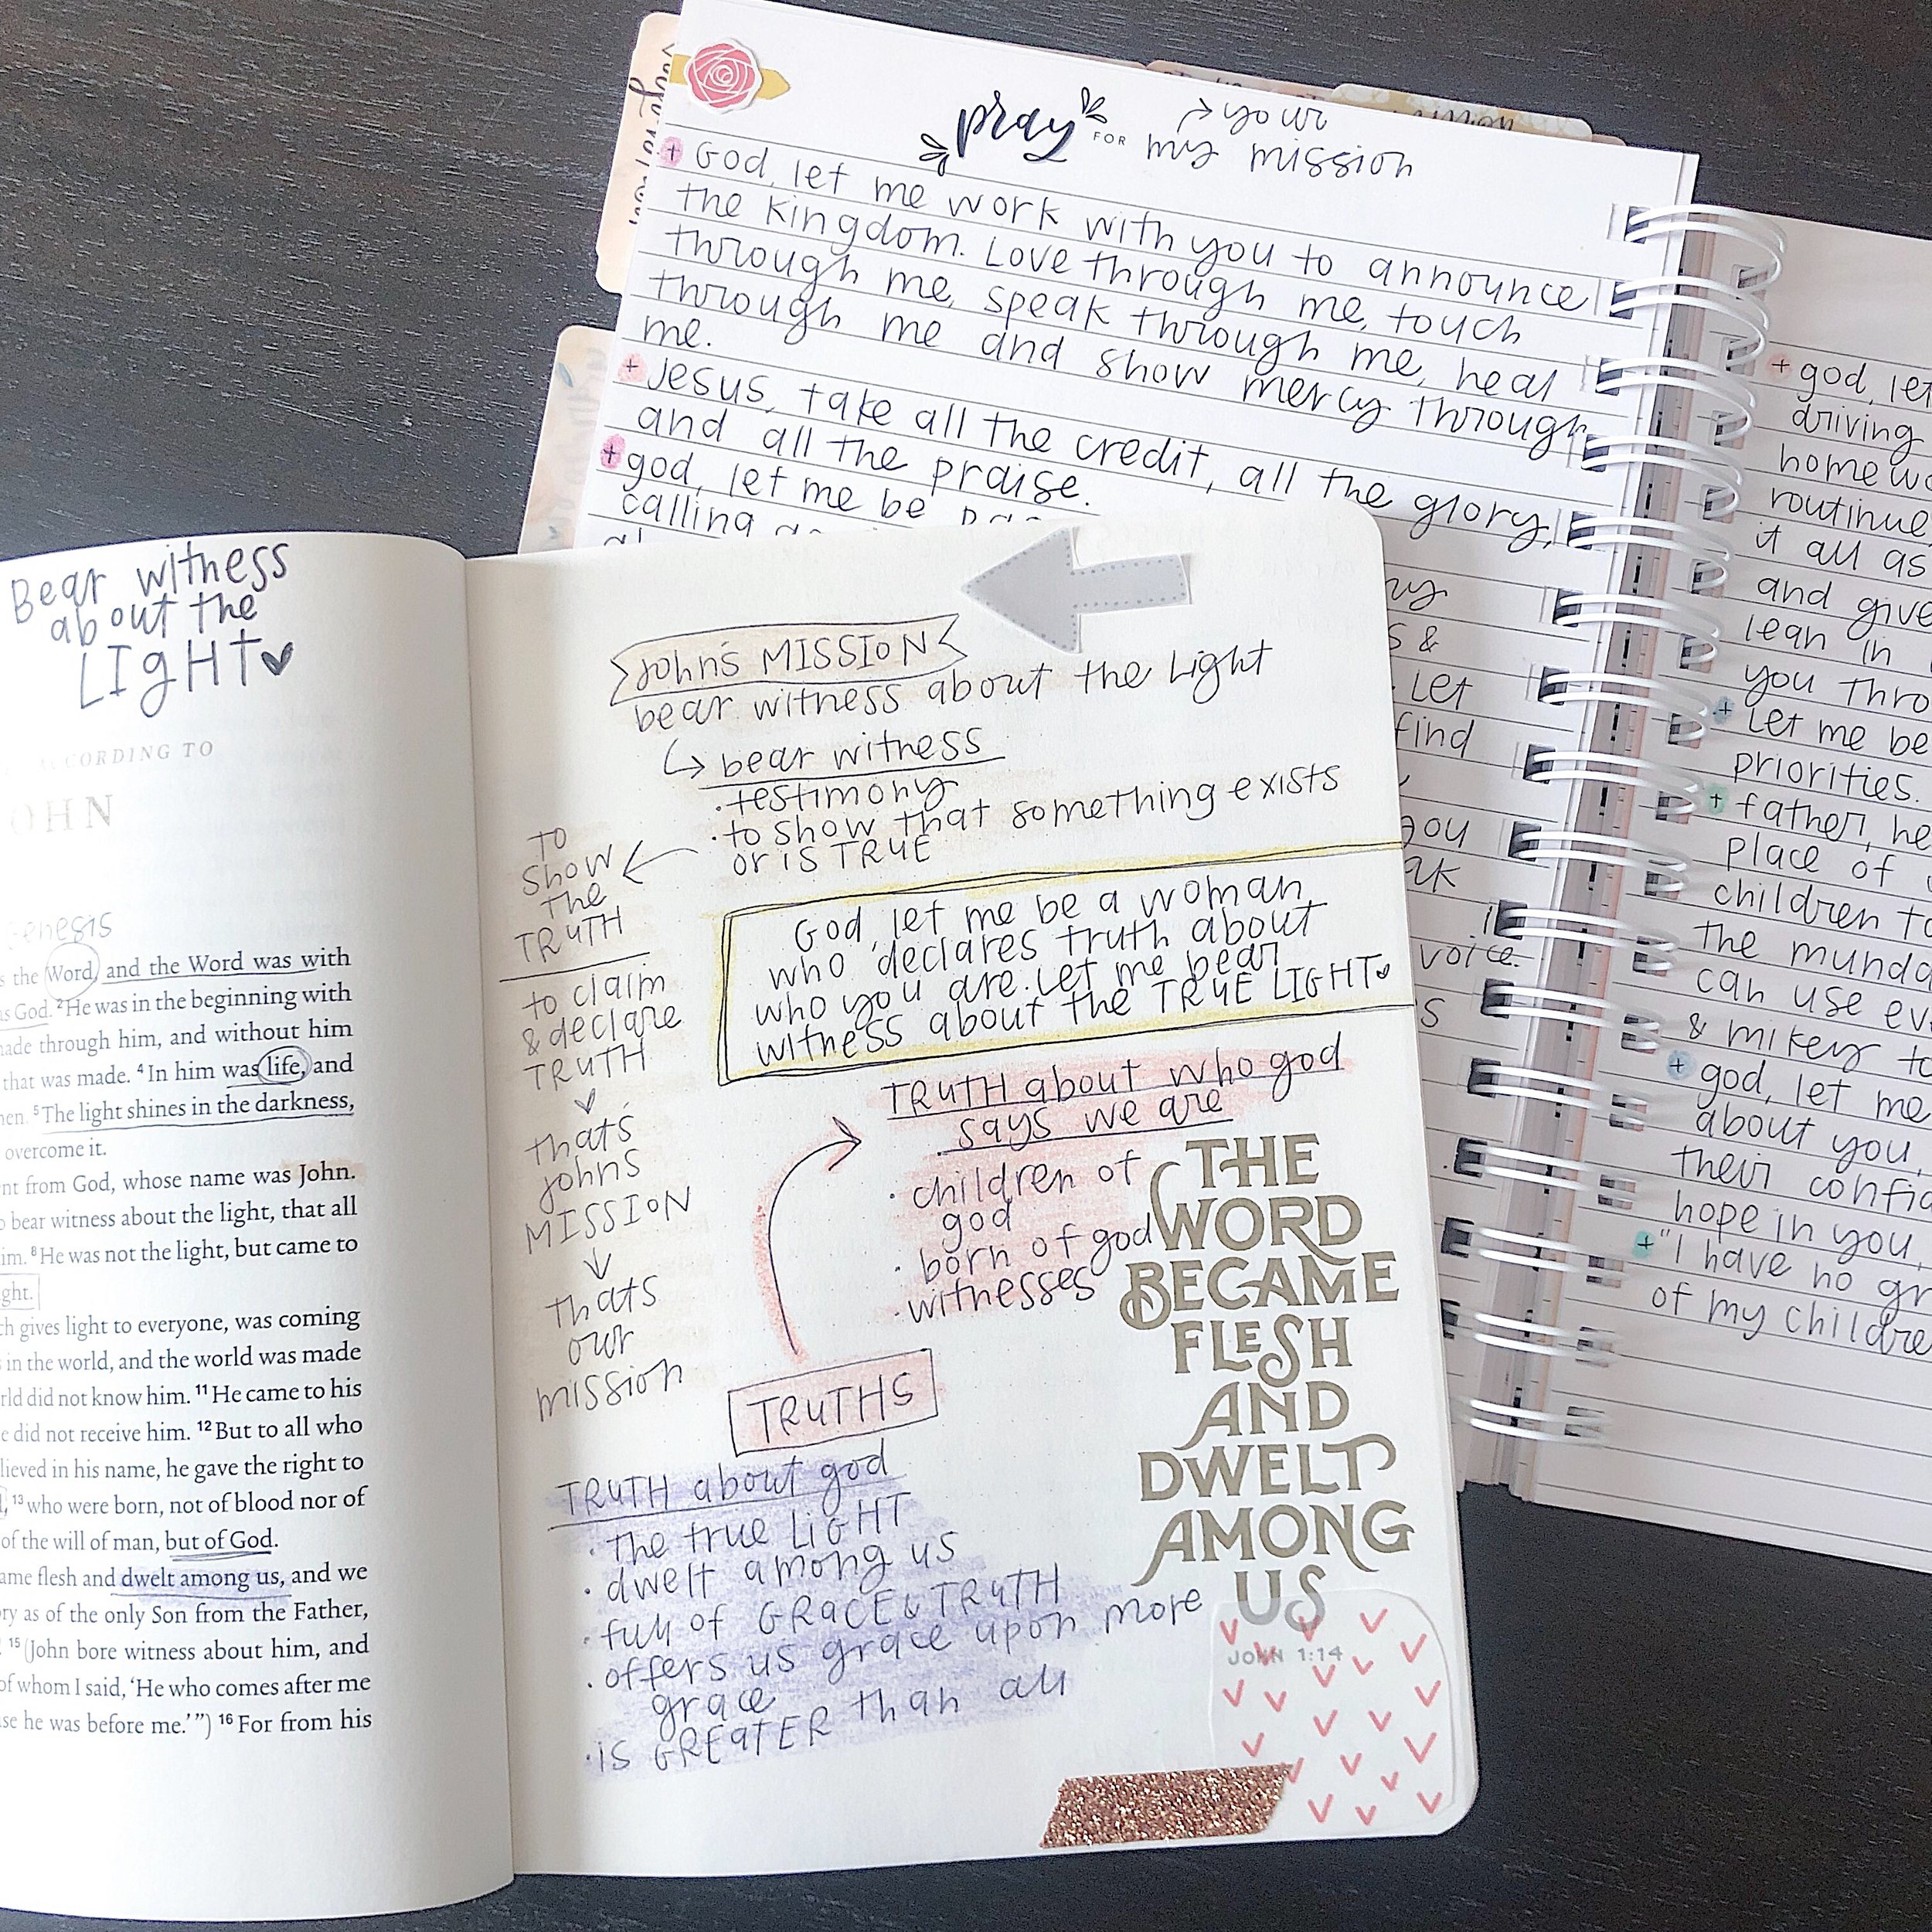 pray FOR my mission
your
+ God, let me work with you to announce
the kingdom. Love through me, touch
through me, speak through me, heal
through me and show mercy through
me.
+ Jesus, take all the credit, all the glory,
and all the praise.
+ god, let me be
calling
ny
s &
. Let
find
you
voice.
+ god, let
driving
routine
it all as
and give
lean in
you thro
+ Let me be
priorities.
+ father, he
place of
children to
the munda
can use ev
& mikey to
+ god, let me
about you,
their confid
hope in you,
+ "I have no gr
of my childre
Bear witness
about the
LIGHT
ACCORDING TO
JOHN
genesis
s the Word, and the Word was with
as God. ²He was in the beginning with
ade through him, and without him
that was made. ⁴In him was life, and
men. ⁵The light shines in the darkness,
overcome it.
nt from God, whose name was John.
o bear witness about the light, that all
him. ⁸He was not the light, but came to
ght.
ch gives light to everyone, was coming
in the world, and the world was made
rld did not know him. ¹¹He came to his
e did not receive him. ¹²But to all who
lieved in his name, he gave the right to
, ¹³who were born, not of blood nor of
of the will of man, but of God.
ame flesh and dwelt among us, and we
ry as of the only Son from the Father,
¹⁵(John bore witness about him, and
of whom I said, ‘He who comes after me
se he was before me.’”) ¹⁶For from his
John's MISSION
bear witness about the Light
bear witness
· testimony
· to show that something exists
or is TRUE
TO
show
the
TRUTH
to claim
& declare
TRUTH
that's
johns
MISSION
thats
our
mission
God, let me be a woman
who declares truth about
who you are. Let me bear
witness about the TRUE LIGHT
TRUTH about who god
says we are
· children of
god
· born of god
· witnesses
TRUTHS
TRUTH about god
· the true LIGHT
· dwelt among us
· full of GRACE & TRUTH
· offers us grace upon more
grace
· is GREATER than all
THE
WORD
BECAME
FLESH
AND
DWELT
AMONG
US
JOHN 1:14